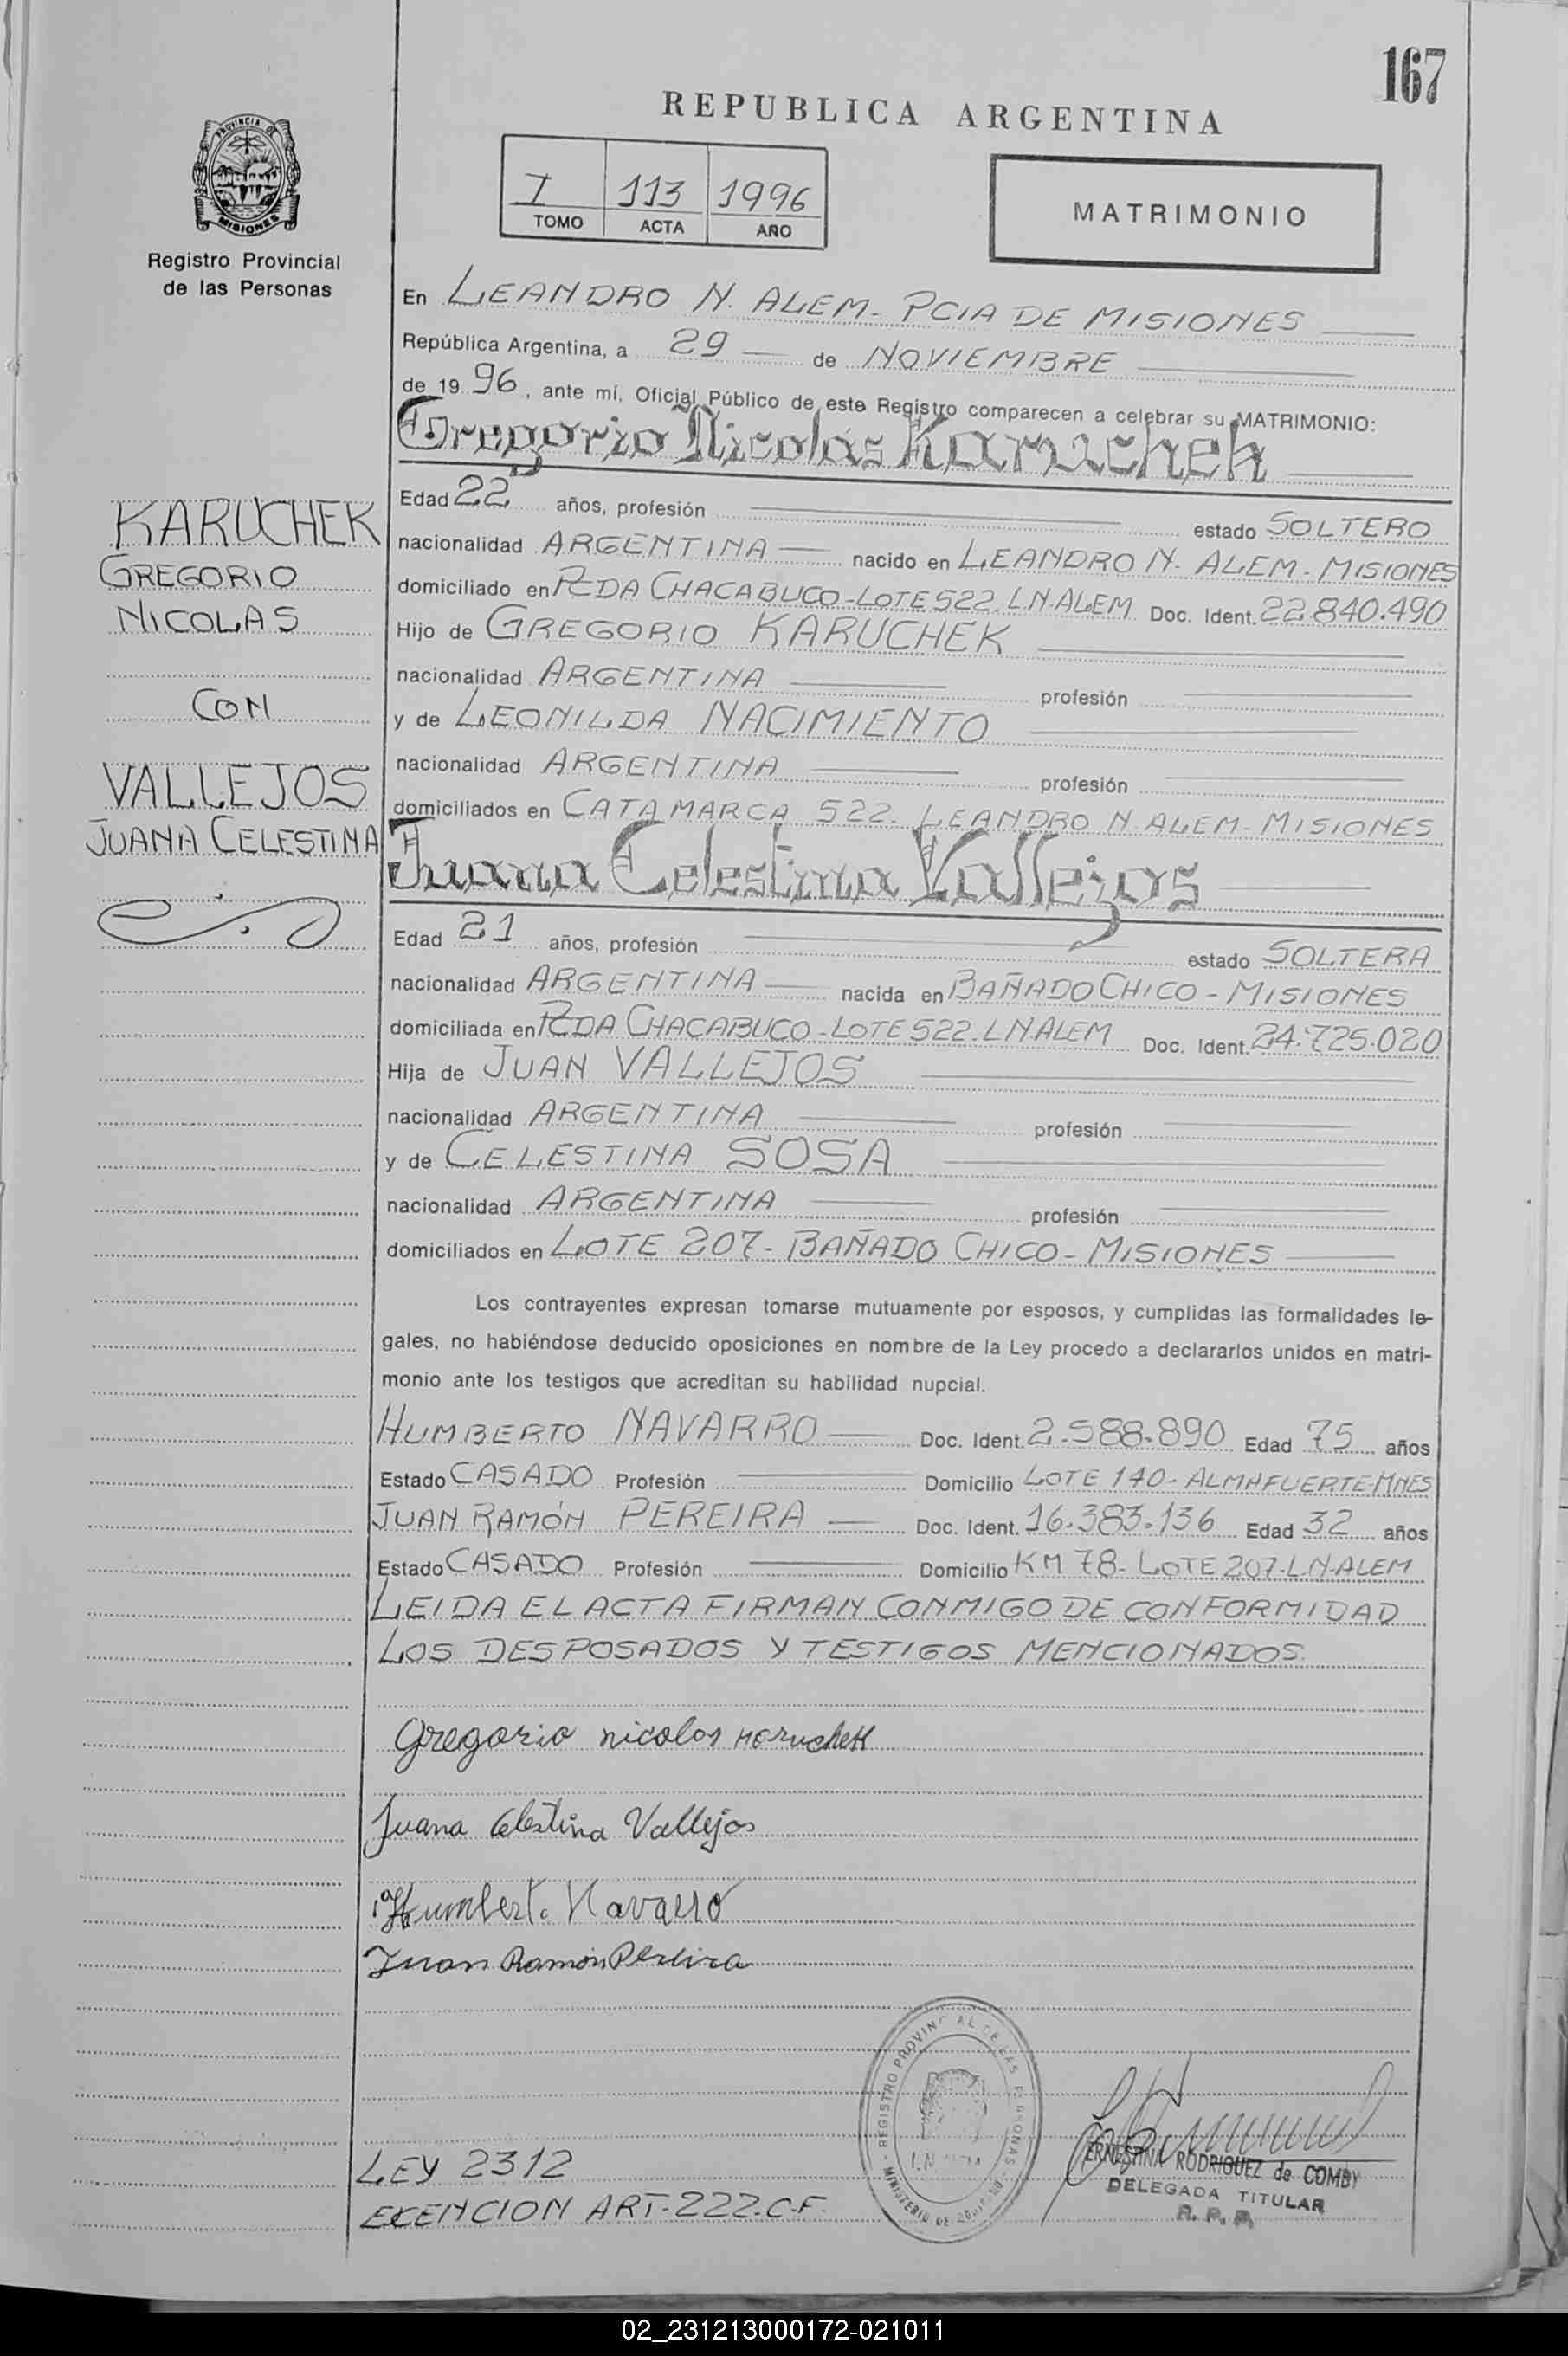 167
REPUBLICA ARGENTINA
PROVINCIA DE
MISIONES
Registro Provincial
de las Personas
I 113 1996
TOMO ACTA AÑO
MATRIMONIO
En LEANDRO N. ALEM- PCIA DE MISIONES
República Argentina, a 29 de NOVIEMBRE
de 19 96, ante mí, Oficial Público de este Registro comparecen a celebrar su MATRIMONIO:
Gregorio Nicolás Karuchek
KARUCHEK
GREGORIO
NICOLAS
CON
VALLEJOS
JUANA CELESTINA
Edad 22 años, profesión estado SOLTERO
nacionalidad ARGENTINA nacido en LEANDRO N. ALEM-MISIONES
domiciliado en PCDA CHACABUCO-LOTE 522. L.N.ALEM Doc. Ident. 22.840.490
Hijo de GREGORIO KARUCHEK
nacionalidad ARGENTINA profesión
y de LEONILDA NACIMIENTO
nacionalidad ARGENTINA profesión
domiciliados en CATAMARCA 522. LEANDRO N ALEM-MISIONES
Juana Celestina Vallejos
Edad 21 años, profesión estado SOLTERA
nacionalidad ARGENTINA nacida en BAÑADO CHICO-MISIONES
domiciliada en PCDA CHACABUCO-LOTE 522. L.N.ALEM Doc. Ident. 24.725.020
Hija de JUAN VALLEJOS
nacionalidad ARGENTINA profesión
y de CELESTINA SOSA
nacionalidad ARGENTINA profesión
domiciliados en LOTE 207- BAÑADO CHICO-MISIONES
Los contrayentes expresan tomarse mutuamente por esposos, y cumplidas las formalidades le-
gales, no habiéndose deducido oposiciones en nombre de la Ley procedo a declararlos unidos en matri-
monio ante los testigos que acreditan su habilidad nupcial.
HUMBERTO NAVARRO Doc. Ident. 2.588.890 Edad 75 años
Estado CASADO Profesión Domicilio LOTE 140-ALMAFUERTE-MNES
JUAN RAMÓN PEREIRA Doc. Ident. 16.383.136 Edad 32 años
Estado CASADO Profesión Domicilio KM 78-LOTE 207-L.N.ALEM
LEIDA EL ACTA FIRMAN CONMIGO DE CONFORMIDAD
LOS DESPOSADOS Y TESTIGOS MENCIONADOS.
Gregorio nicolos Karuchek
Juana Celestina Vallejos
Humberto Navarro
Juan Ramón Pereira
REGISTRO PROVINCIAL DE LAS PERSONAS
MINISTERIO DE
ERNESTINA RODRIGUEZ de COMBY
DELEGADA TITULAR
R. P. P.
LEY 2312
EXENCION ART-222.C.F.
02_231213000172-021011